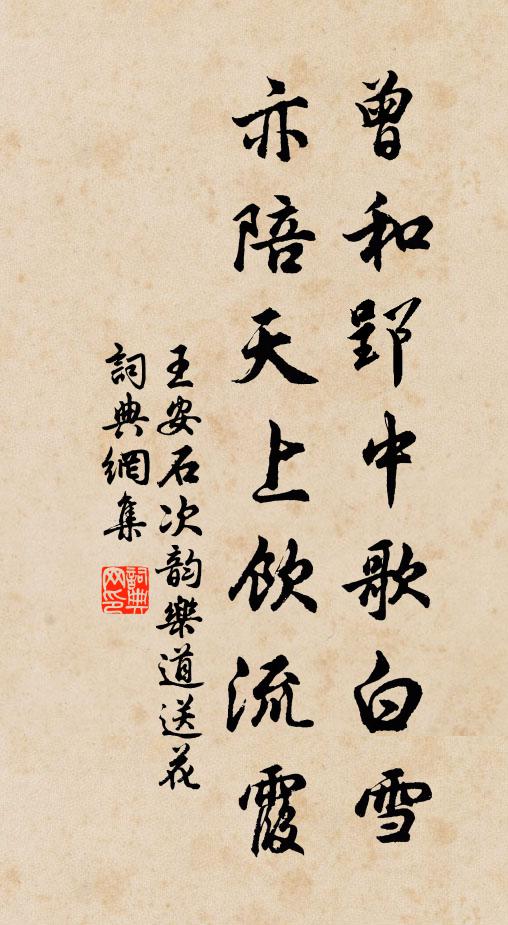 曾和郢中歌白雪
亦陪天上飲流霞
王安石次韵樂道送花
詞典網集
詞典網印